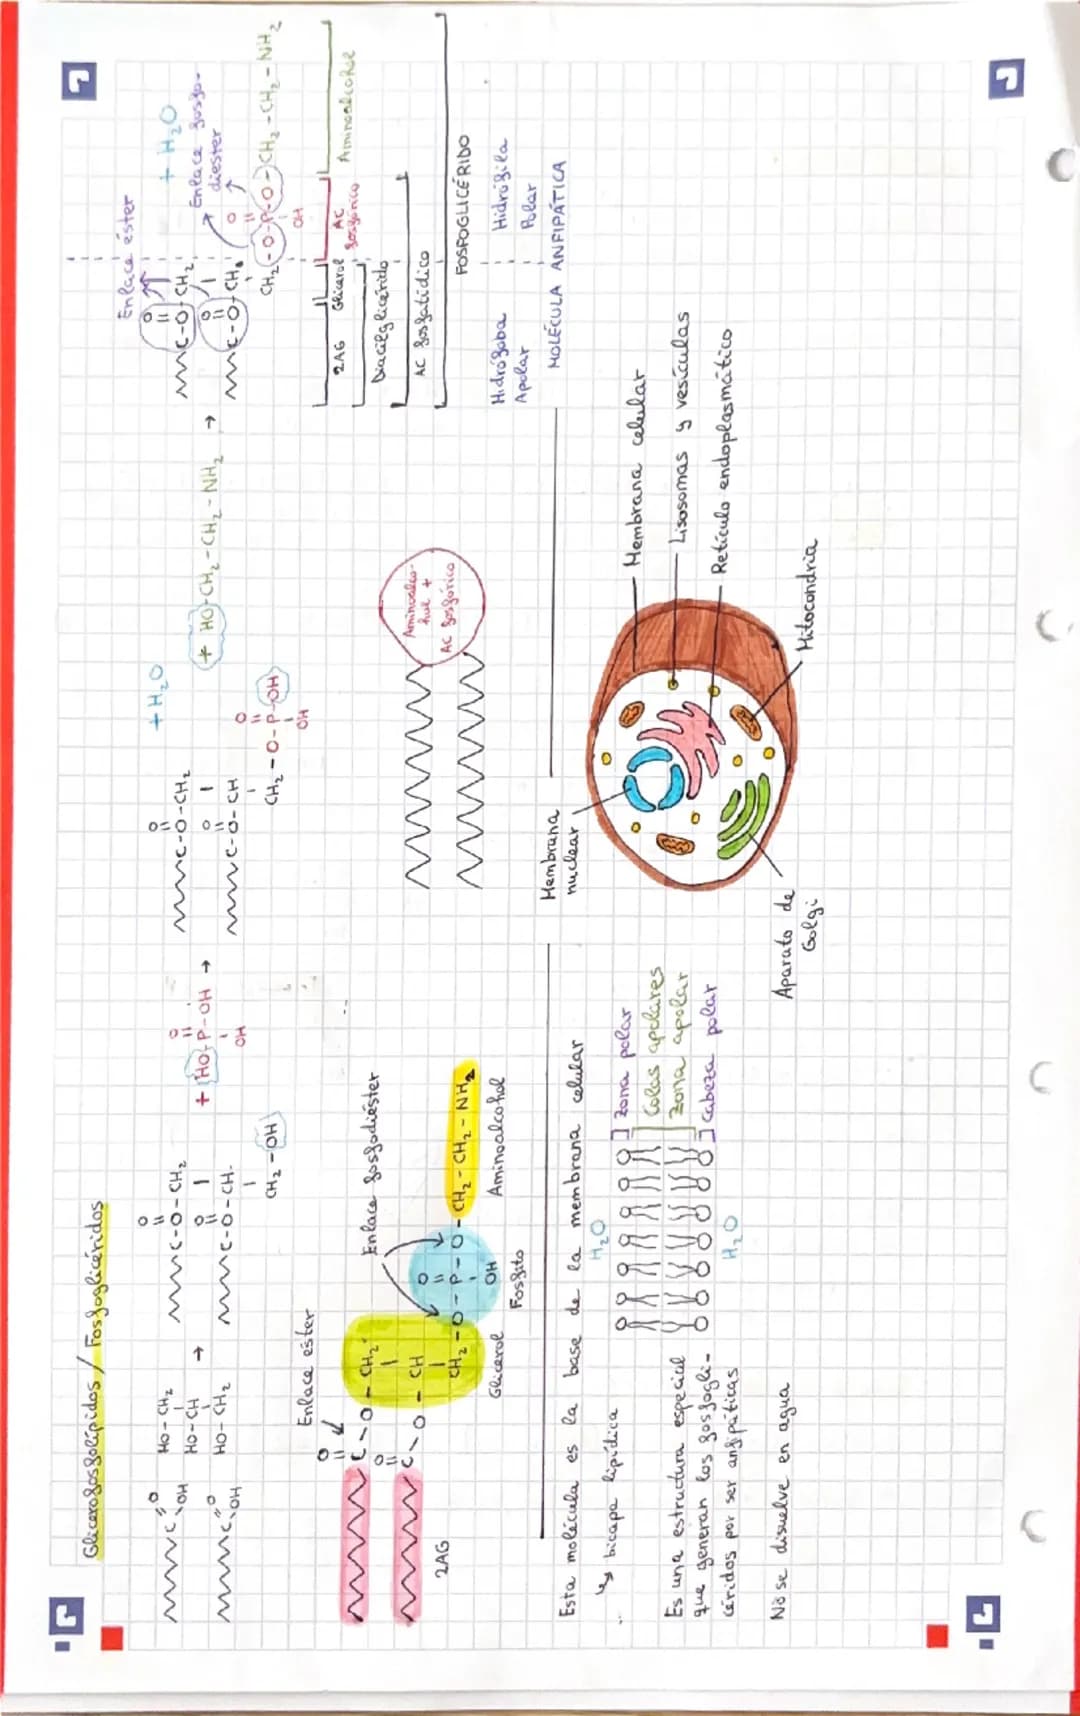 Glicerofosfolípidos / Fosfoglicéridos
O
C
OH
HO-CH₂
HO-CH
HO-CH₂
O
C
OH
→
O
C-O-CH₂
O
C-O-CH-
CH₂-OH
+ HO-P-OH →
O
OH
O
C-O-CH₂
O
C-O-CH
O
CH₂-O-P-OH
OH
+ H₂O
+ HO-CH₂-CH₂-NH₂ →
Enlace éster
O
C-O-CH₂
+ H₂O
O
C-O-CH₂
Enlace fosfo-
diester
O
CH₂-O-P-O-CH₂-CH₂-NH₂
OH
2AG Glicerol AC fosfórico Aminoalcohol
Diacilglicérido
AC fosfatídico
FOSFOGLICÉRIDO
Hidrófoba Hidrófila
Apolar Polar
MOLÉCULA ANFIPÁTICA
Enlace ester
O
C-O-CH₂
Enlace fosfodiéster
O
C-O-CH
O
CH₂-O-P-O-CH₂-CH₂-NH₂
OH
2AG
Glicerol
Fosfito
Aminoalcohol
Aminoalco-
hol +
AC fosfórico
Esta molécula es la base de la membrana celular
↳ bicapa lipídica
H₂O
Es una estructura especial
que generan los fosfogli-
céridos por ser anfipáticas
No se disuelve en agua
] Zona polar
Colas apolares
Zona apolar
] Cabeza polar
H₂O
Membrana
nuclear
Membrana celular
Lisosomas y vesículas
Retículo endoplasmático
Mitocondria
Aparato de
Golgi